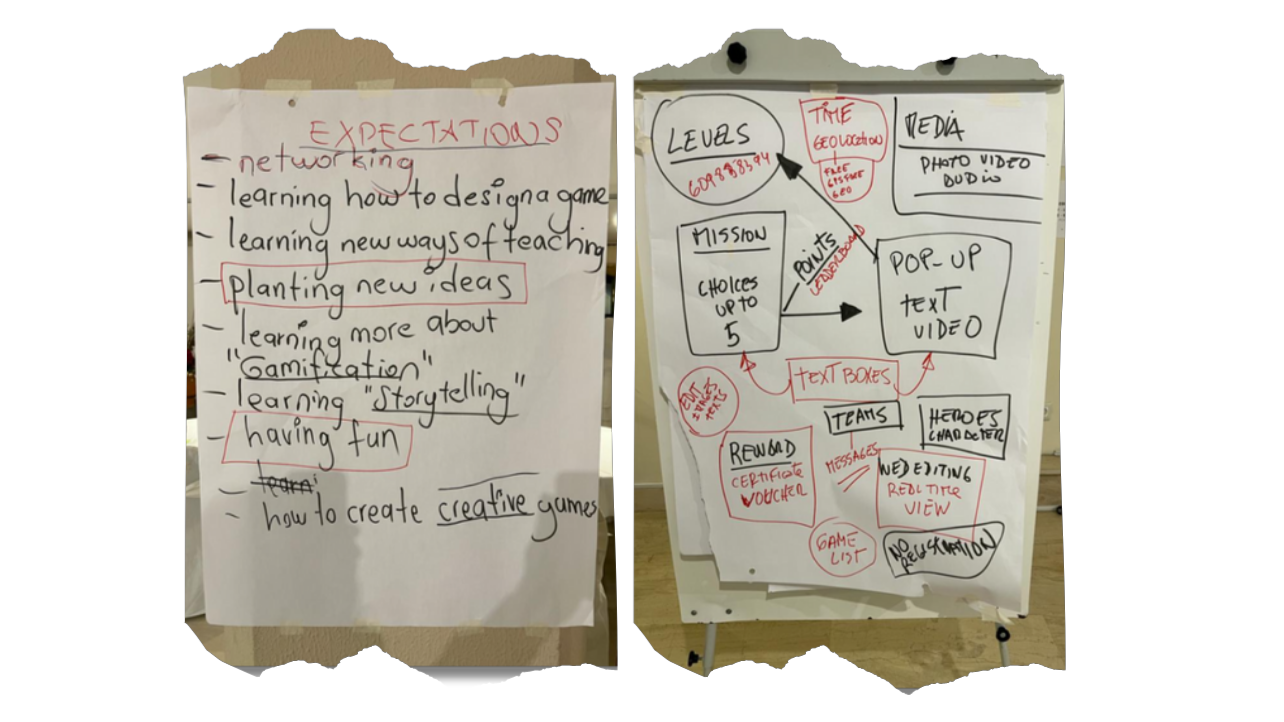 EXPECTATIONS
- networking
- learning how to design a game
- learning new ways of teaching
- planting new ideas
- learning more about
"Gamification"
- learning "Storytelling"
- having fun
- learn
- how to create creative games
LEVELS
TIME
GEOLOCATION
FREE
GEO
MEDIA
PHOTO VIDEO
AUDIO
MISSION
CHOICES
UP TO
5
POINTS
LEADERBOARD
POP-UP
TEXT
VIDEO
TEXT BOXES
EDIT
IMAGES
TEXTS
TEAMS
HEROES
CHARACTER
REWARD
CERTIFICATE
VOUCHER
MESSAGES
WEB EDITING
REAL TIME
VIEW
GAME
LIST
NO
REGISTRATION